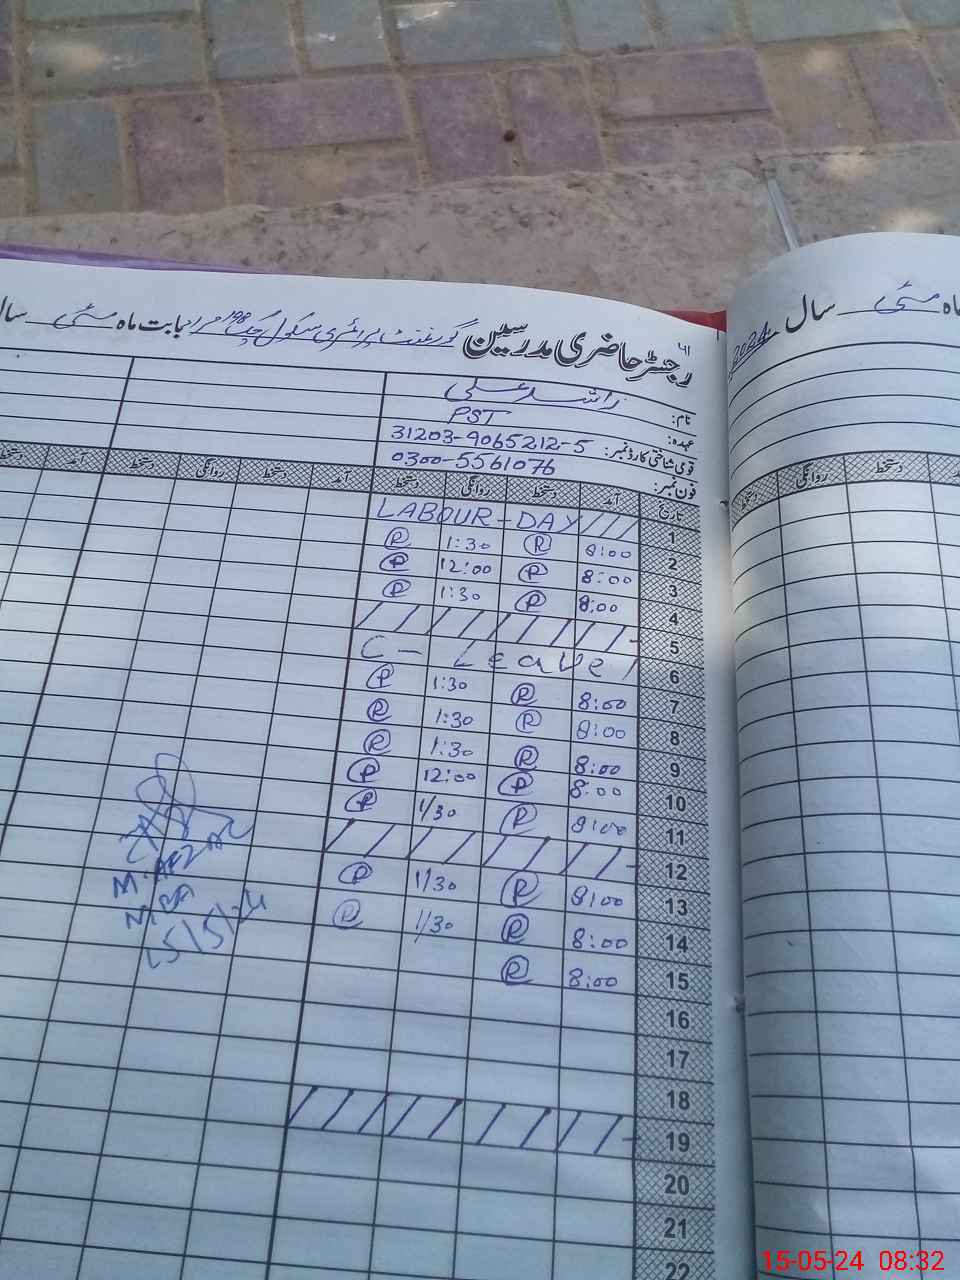 رجسٹر حاضری مدرسین گورنمنٹ پرائمری سکول چک 198 مراد بابت ماہ مئی سال
نام: راشد علی
عہدہ: PST
قومی شناختی کارڈ نمبر: 31203-9065212-5
فون نمبر: 0300-5561076
تاریخ آمد دستخط روانگی دستخط آمد دستخط روانگی دستخط آمد
1 LABOUR-DAY
2 8:00 P 1:30 P
3 8:00 P 12:00 P
4 8:00 P 1:30 P
5
6 C-Leave
7 8:00 P 1:30 P
8 8:00 P 1:30 P
9 8:00 P 1:30 P
10 8:00 P 12:00 P
11 8:00 P 1/30 P
12
13 8:00 P 1/30 P
14 8:00 P 1/30 P
15 8:00 P
16
17
18
19
20
21
22
M. AFZAL
15/5/24
ماہ مئی سال 2024
دستخط روانگی دستخط
15-05-24 08:32